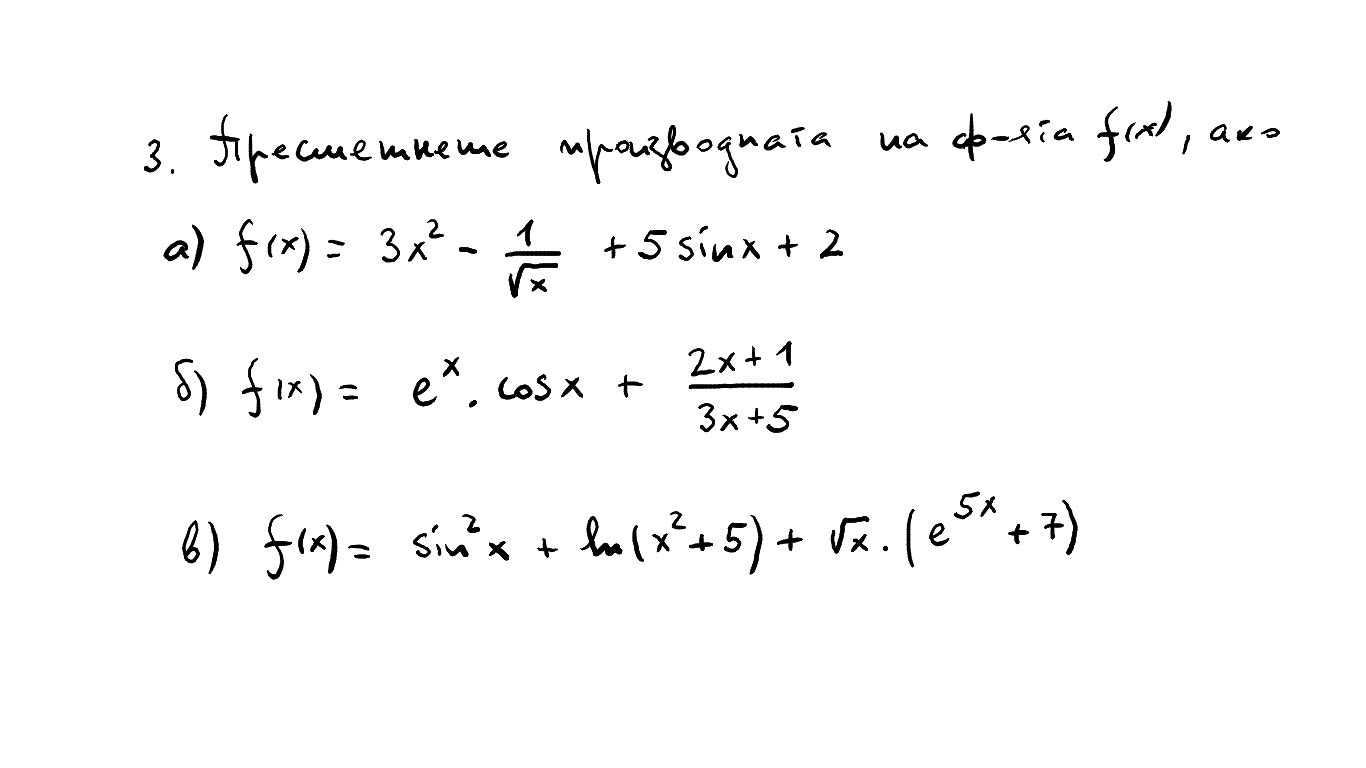 3. Пресметнете производната на ф-ята f(x), ако
а) f(x) = 3x² - 1/√x + 5 sin x + 2
б) f(x) = e^x . cos x + (2x+1)/(3x+5)
в) f(x) = sin²x + ln(x²+5) + √x . (e^5x + 7)